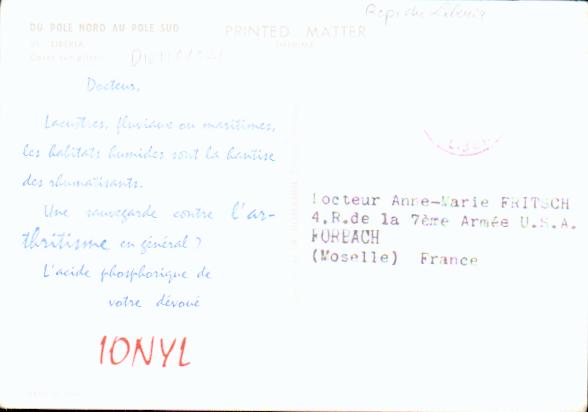 Rep. du Liberia
DU POLE NORD AU POLE SUD
PRINTED MATTER
LIBERIA
IMPRIMÉ
Docteur,
Lacustres, fluviaux ou maritimes,
les habitats humides sont la hantise
des rhumatisants.
Une sauvegarde contre l'ar-
thritisme en général ?
L'acide phosphorique de
votre dévoué
IONYL
Docteur Anne-Marie FRITSCH
4,R.de la 7ème Armée U.S.A.
FORBACH
(Moselle) France